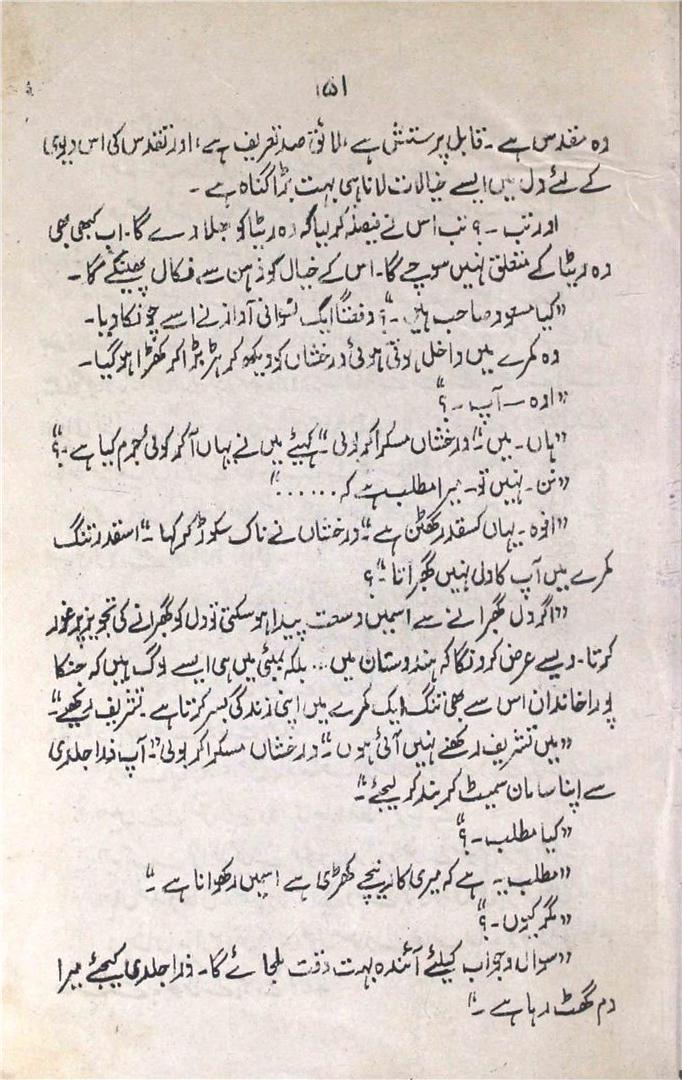 ۱۵۱
وہ مقدس ہے ۔ قابل پرستش ہے ، لائق صد تعریف ہے ، اور تقدس کی اس دیوی
کے لئے دل میں ایسے خیالات لانا ہی بہت بڑا گناہ ہے ۔
اور تب ۔ ؟ تب اس نے فیصلہ کر لیا کہ وہ ریٹا کو بھلا دے گا۔ اب کبھی بھی
وہ ریٹا کے متعلق نہیں سوچے گا۔ اس کے خیال کو ذہن سے نکال پھینکے گا ۔
”کیا مسعود صاحب ہیں ۔“؟ دفعتاً ایک نسوانی آواز نے اسے چونکا دیا۔
وہ کمرے میں داخل ہوتی ہوئی درخشاں کو دیکھ کر ہڑبڑا کر کھڑا ہو گیا۔
”اوہ — آپ ۔ ؟“
”ہاں ۔ میں ۔“ درخشاں مسکرا کر بولی ۔ ”کہیئے میں نے یہاں آ کر کوئی جرم کیا ہے ۔ ؟“
”نن ۔ نہیں تو ۔ میرا مطلب ہے کہ . . . . . .“
”افوہ ۔ یہاں کسقدر گھٹن ہے ۔“ درخشاں نے ناک سکوڑ کر کہا ۔ ”اسقدر تنگ
کمرے میں آپ کا دل نہیں گھبراتا ۔“ ؟
”اگر دل گھبرانے سے اسمیں وسعت پیدا ہو سکتی تو دل کو گھبرانے کی تجویز پر غور
کرتا ۔ ویسے عرض کرونگا کہ ہندوستان میں ... بلکہ بمبئی میں ہی ایسے لوگ ہیں کہ جنکا
پورا خاندان اس سے بھی تنگ ایک کمرے میں اپنی زندگی بسر کرتا ہے ۔ تشریف رکھیے ۔“
”میں تشریف رکھنے نہیں آئی ہوں ۔“ درخشاں مسکرا کر بولی ۔ ”آپ ذرا جلدی
سے اپنا سامان سمیٹ کر بند کر لیجئے ۔“
”کیا مطلب ۔ ؟“
”مطلب یہ ہے کہ میری کار نیچے کھڑی ہے اسمیں رکھوانا ہے ۔“
”مگر کیوں ۔ ؟“
”سوال و جواب کیلئے آئندہ بہت وقت ملجائے گا۔ ذرا جلدی کیجئے میرا
دم گھٹ رہا ہے ۔“